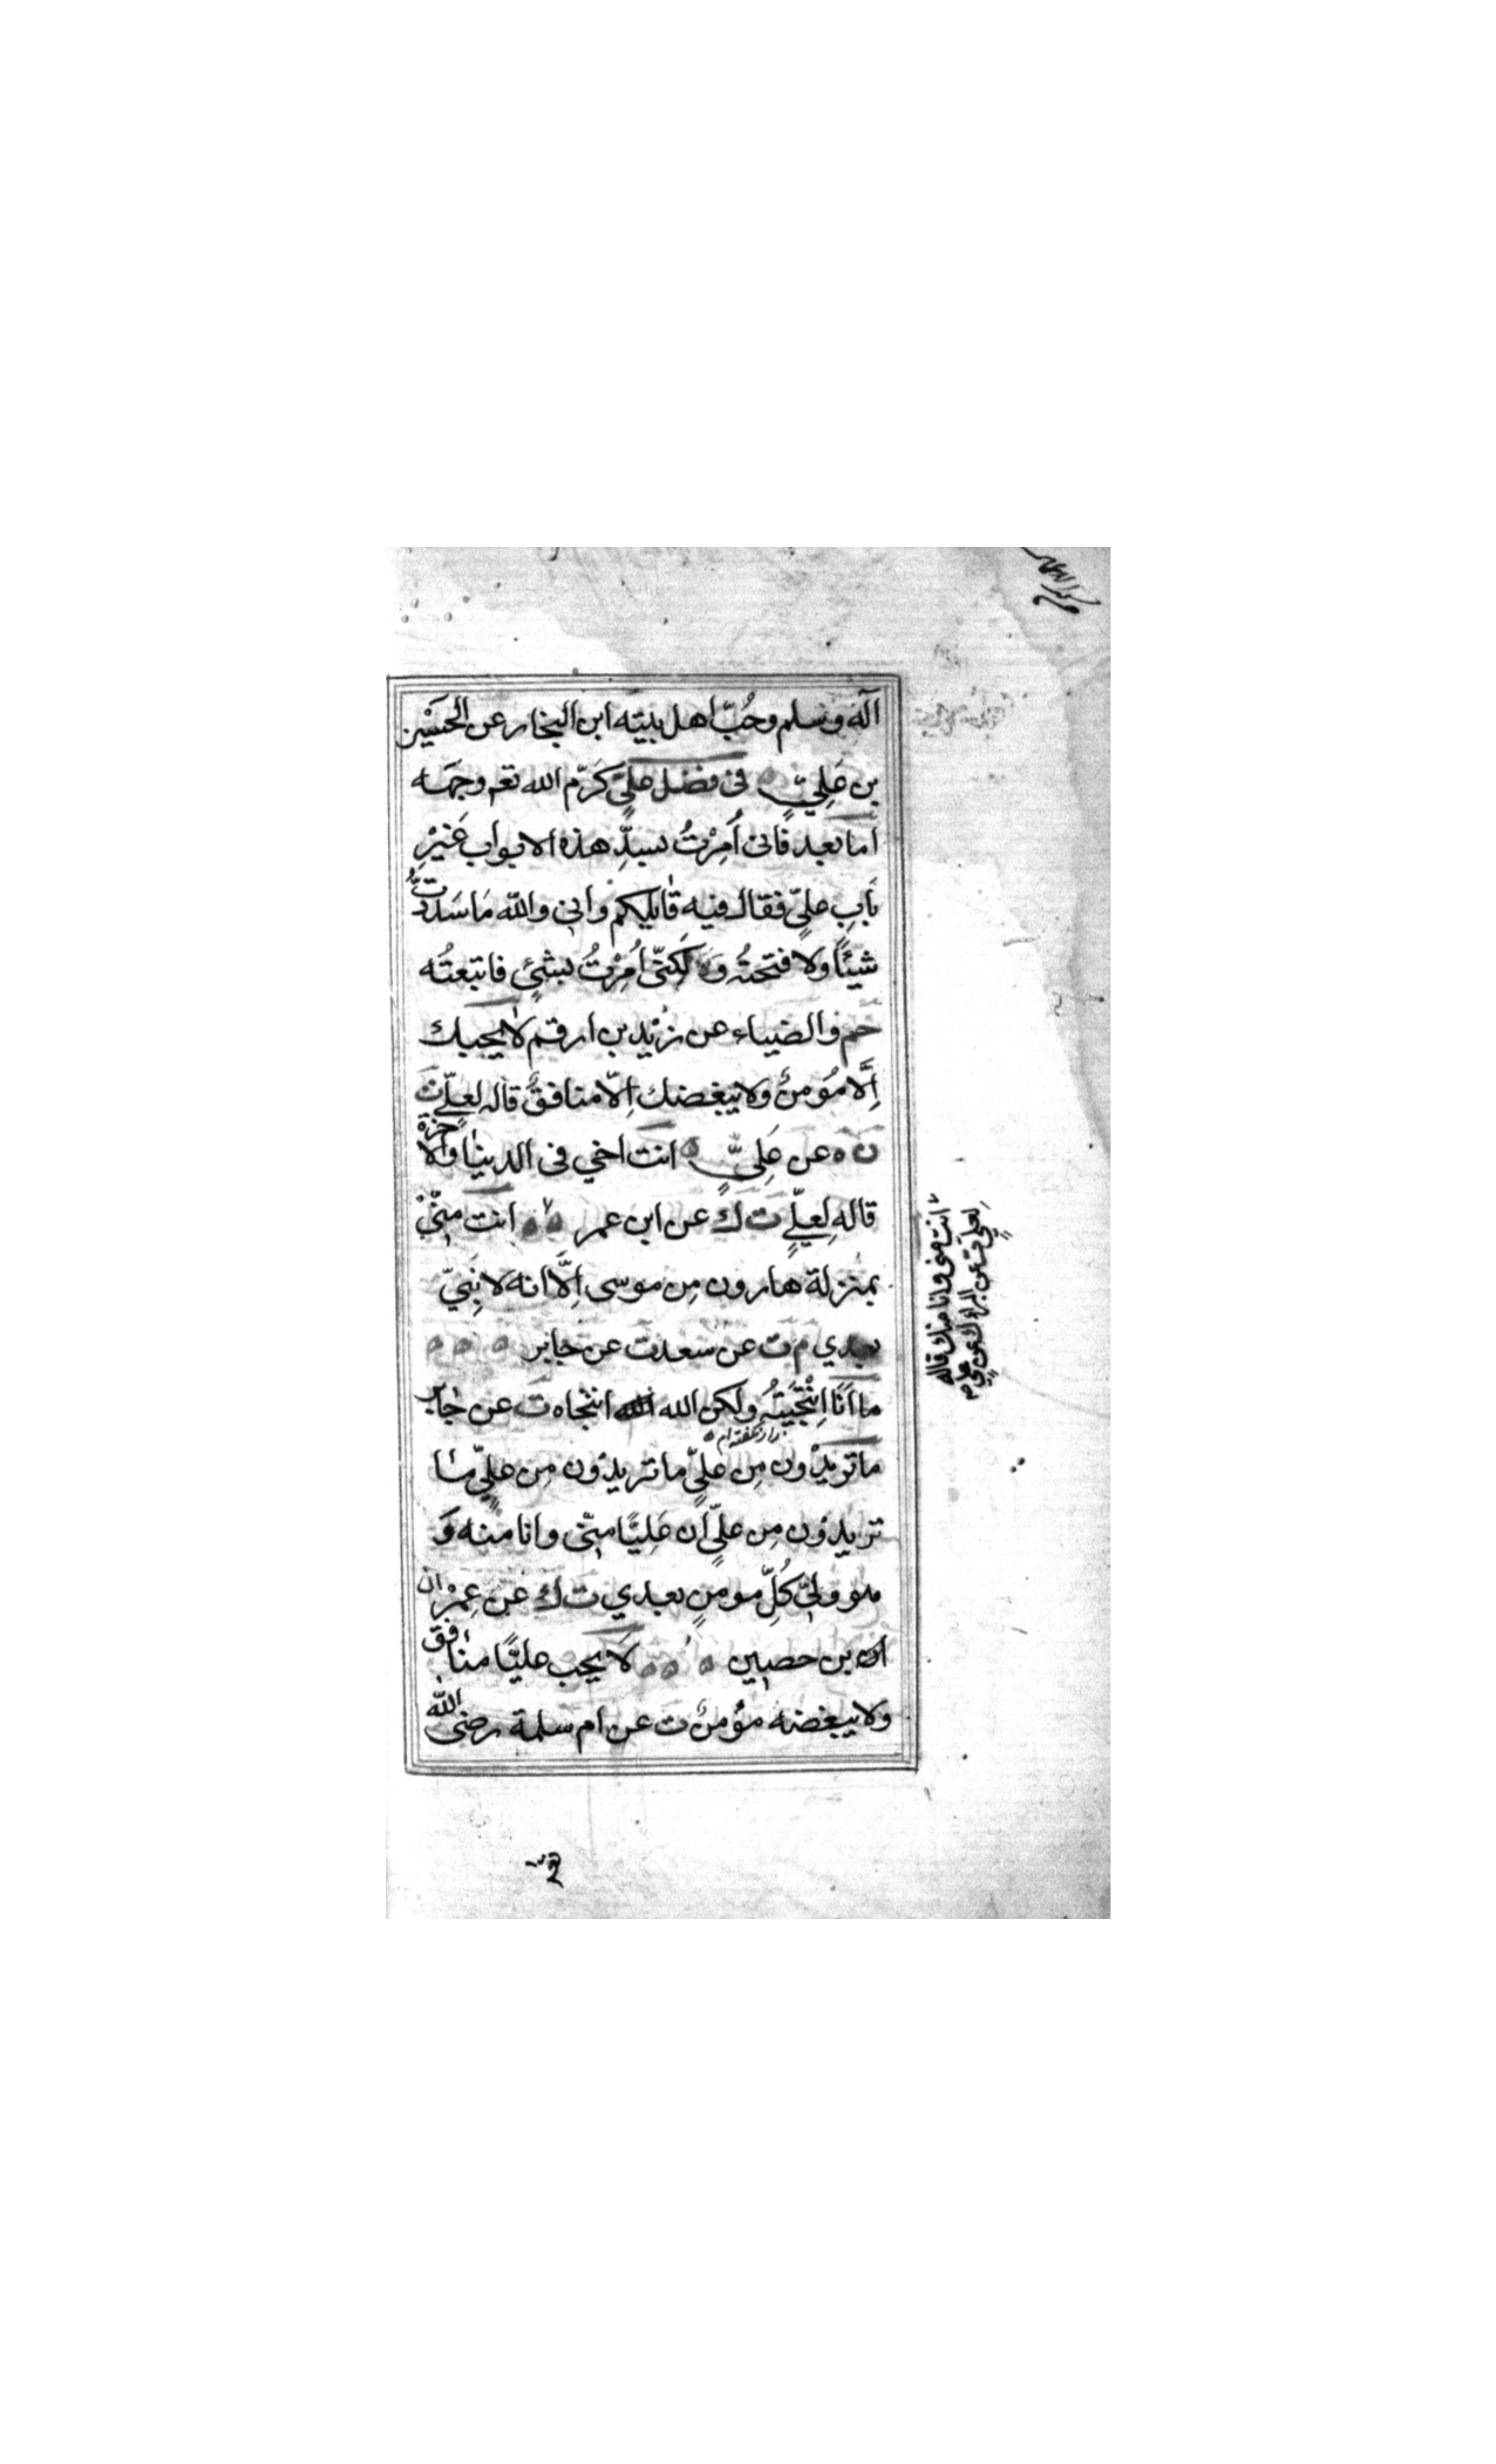 آله وسلم وحُبّ اهل بيته ابن النجار عن الحسَيْن
بن عَلِيٍّ ه في فضل عليٍّ كرّم الله تعم وجهه
اما بعد فانى اُمِرْتُ بسدِّ هذه الابواب غَيْرِ
بَابِ عليٍّ فقال فيه قايلكم وانى والله مَا سَددتُّ
شيئًا ولا فتحتُه ولَكنّى اُمِرْتُ بشئٍ فاتبعتُه
حم والضياء عن زَيْد بن ارقم لا يحبك
اِلَّا مُؤمنٌ ولا يبغضك اِلّا منافقٌ قاله لعلّيٍ ت
ن ه عن عَلِيٍّ ه انت اخي في الدنيا والاخرة
قاله لِعليٍّ ت ك عن ابن عمر ه ه انت مِنّيْ
بمنزلة هارون مِن موسى اِلَّا انه لا نبِيّ
بعدي م ت عن سعد ت عن جابر ه ه ه
ما اَنَا اِنْتَجَيْتُه ولكن الله انتجاه ت عن جابر
راز نگفته ام ه
ما تريدُون مِن عليٍّ ما تريدُون مِن عليٍّ ما
تريدُون مِن عليٍّ اِن عَلِيًّا مِنّى وانا منه وَ
هو ولىّ كُلِّ مومنٍ بعدي ت ك عن عِمْران
ان بن حصين ه ه ه لا يحب عليًّا منافق
ولا يبغضه مؤمنٌ ت عن ام سلمة رضى الله
انت منى وانا منك قاله
لِعليٍّ ق عن البراء ك عن علي م